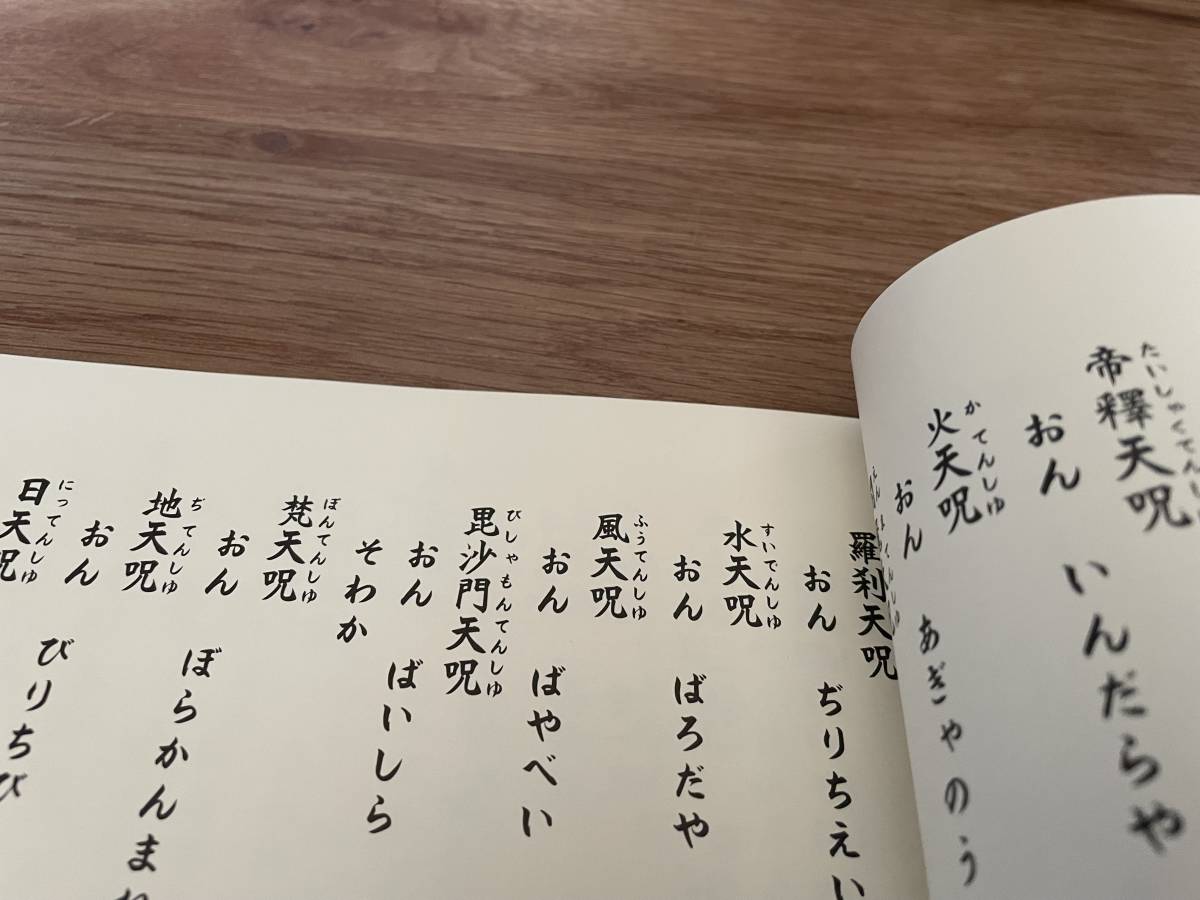 帝釋天呪
たいしゃくてんし
おん いんだらや
火天呪
かてんしゆ
おん あぎやのう
羅刹天呪
おん ぢりちえい
水天呪
すいてんしゆ
おん ばろだや
風天呪
ふうてんしゆ
おん ばやべい
毘沙門天呪
びしゃもんてんしゆ
おん ばいしら
そわか
梵天呪
ぼんてんしゆ
おん ぼらかんまね
地天呪
ぢてんしゆ
おん びりちび
日天呪
にってんしゆ